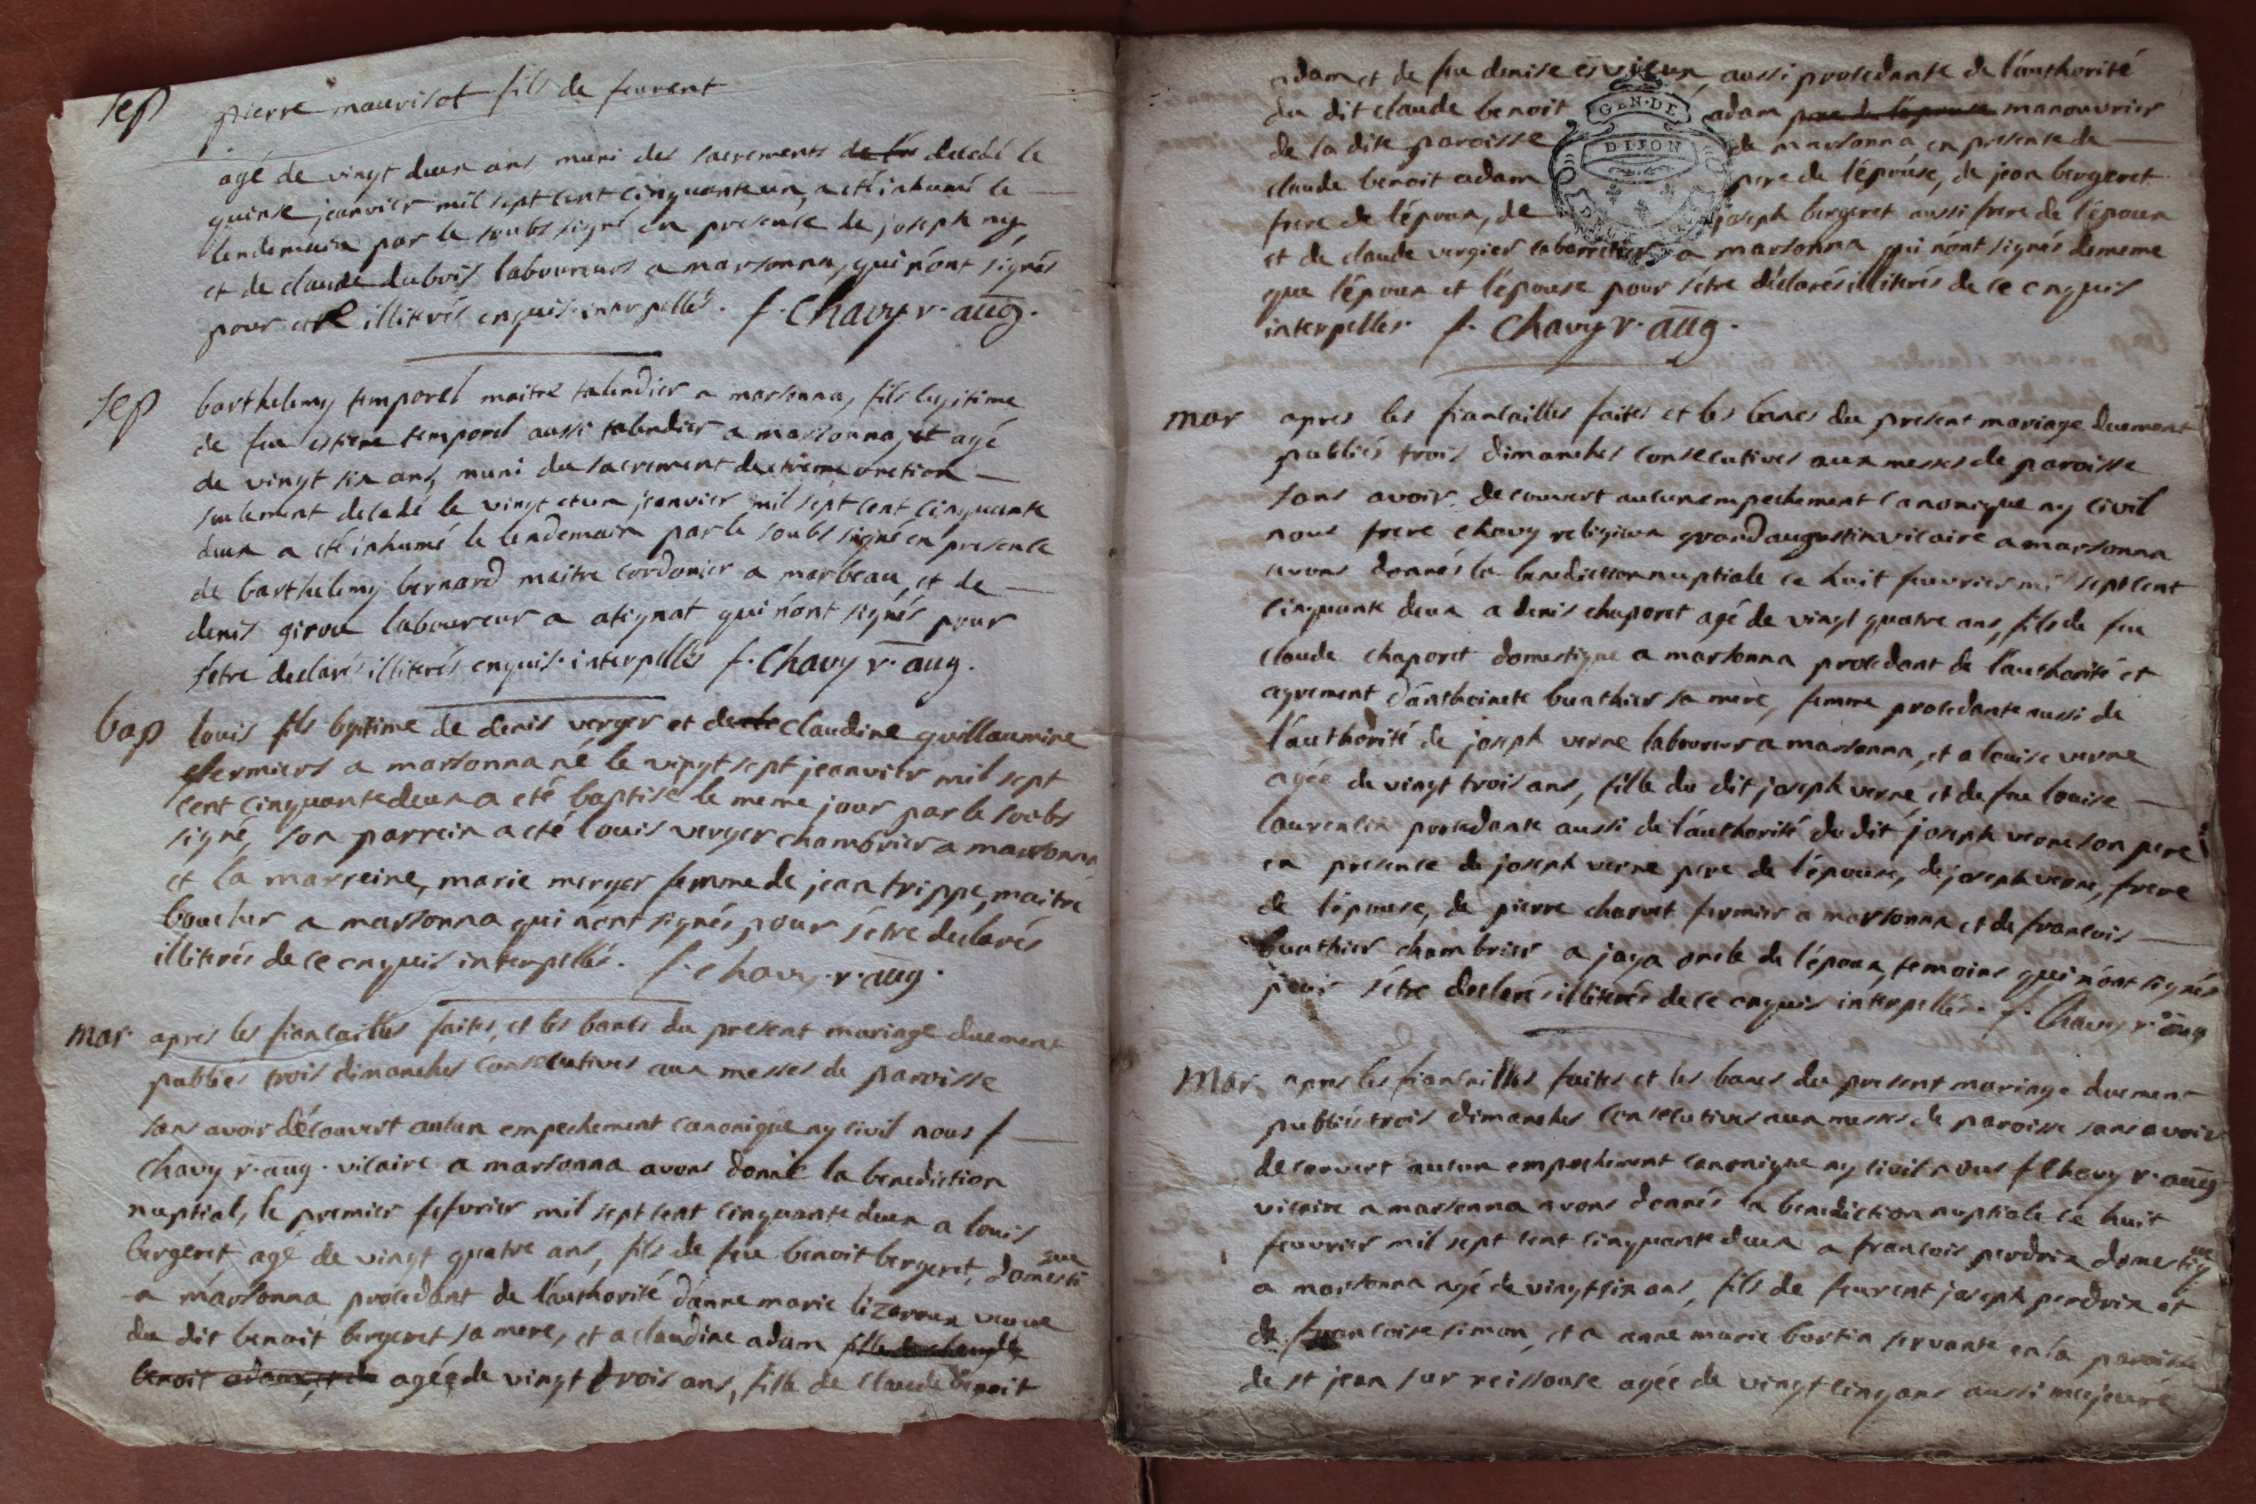 sep pierre maurisot fils de feurent
agé de vingt deux ans muni des sacrements decedé le
quinse jeanvier mil sept cent cinquante un, a eté inhumé le
lendemain par le soubs signé en presense de joseph ny,
et de claude dubois laboureurs a marsonna, qui n'ont signés
pour etre illiterés enquis interpellés. f. Chavy r. aug.
sep barthelemy temporel maitre talendier a marsonna, fils legitime
de feu estiene temporel aussi talendier a marsonna, et agé
de vingt six ans, muni du sacrement dextreme onction
seulement decedé le vingt et un jeanvier mil sept cent cinquante
deux a eté inhumé le lendemain par le soubs signé en presence
de barthelemy bernard maitre cordonier a marbeau, et de
denis girou laboureur a atignat qui n'ont signés pour
s'etre declarés illiterés enquis interpellés f. Chavy r. aug.
bap louis fils legitime de denis verger et de claudine guillaumine
fermiers a marsonna né le vingt sept jeanvier mil sept
cent cinquante deux a eté baptise le meme jour par le soubs
signé, son parrein a eté louis verger chambrier a marsonna
et la marreine, marie merger femme de jean trippe, maitre
boucher a marsonna qui nont signés pour s'etre declarés
illiterés de ce enquis interpellés. f. chavy. r. aug.
mar apres les fiancailles faites, et les bancs du present mariage duement
publiés trois dimanches consecutives aux messes de paroisse
sans avoir découvert aucun empechement canonique ny civil nous f
Chavy r. aug. vicaire a marsonna avons donné la benediction
nuptial, le premier fefvrier mil sept cent cinquante deux a louis
bergeret agé de vingt quatre ans, fils de feu benoit bergeret, domestique
a marsonna procedant de l'authorité d'anne marie lizeroux veuve
du dit benoit bergeret sa mere, et a claudine adam fille de claude
benoit adam, et de agée de vingt trois ans, fille de claude benoit
adam et de feu denise esvieux, aussi procedante de l'authorité
du dit claude benoit adam pere de l'epouse manouvrier
de la dite paroisse de marsonna en presence de
claude benoit adam pere de l'épouse, de jean bergeret
frere de l'époux, de joseph bergeret aussi frere de l'époux
et de claude vergier a marsonna qui n'ont signés de meme
que l'époux et l'épouse pour s'étre déclarés illiterés de ce enquis
interpellés. f. Chavy r. aug.
GEN. DE
DIJON
mar apres les fiancailles faites et les bancs du present mariage duement
publiés trois dimanches consecutives aux messes de paroisse
sans avoir decouvert aucun empechement canonique ny civil
nous frere chavy religieux grand augustin vicaire a marsonna
avons donnés la benediction nuptiale ce huit feuvrier mil sept cent
cinquante deux a denis chaporet agé de vingt quatre ans, fils de feu
claude chaporet domestique a marsonna procedant de l'authorité et
agrement d'anthoinete buathier sa mere, femme procedante aussi de
l'authorité de joseph verne laboureur a marsonna, et a louise verne
agée de vingt trois ans, fille du dit joseph verne, et de feu louise
laurencin procedante aussi de l'authorité du dit joseph verne son pere
en presence de joseph verne pere de l'épouse, de joseph verne, frere
de l'épouse, de pierre charvet fermier a marsonna et de francois
buathier chambrier a jaya oncle de l'époux, temoins qui n'ont signés
pour s'étre declarés illiterés de ce enquis interpellés. f. Chavy r. aug
Mar. apres les fiancailles faites et les bancs du present mariage duement
publiés trois dimanches consecutives aux messes de paroisse sans avoir
decouvert aucun empechement canonique ny civil nous f Chavy r. aug
vicaire a marsonna avons donnés la benediction nuptiale ce huit
feuvrier mil sept cent cinquante deux a francois perdrix domestique
a marsonna agé de vingt six ans, fils de feurent joseph perdrix et
de francoise simon, et a anne marie bortin servante en la paroisse
de st jean sur reissouse agée de vingt cinq ans aussi majeure